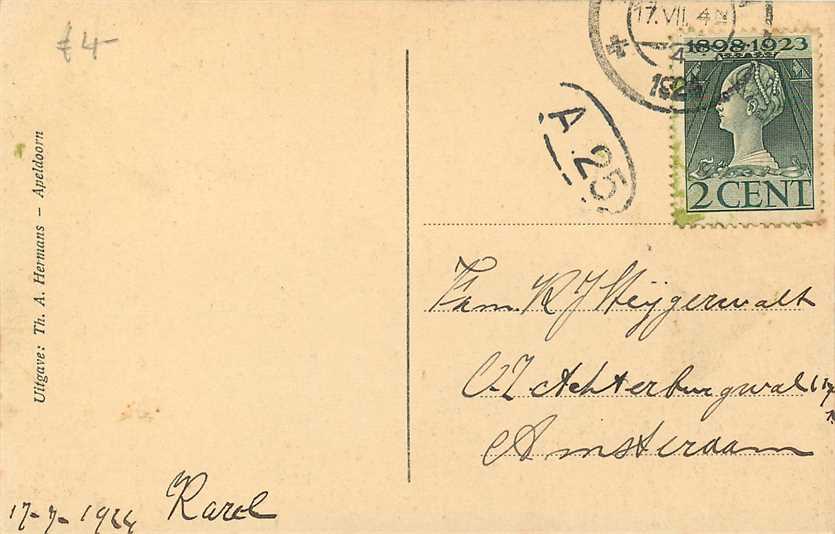 £4-
Uitgave: Th. A. Hermans - Apeldoorn
17-7-1924 Karel
17.VII. 4N
4
1924
A.25
1898·1923
2 CENT
Fam. R J Steijgerwalt
O.Z Achterburgwal
Amsterdam